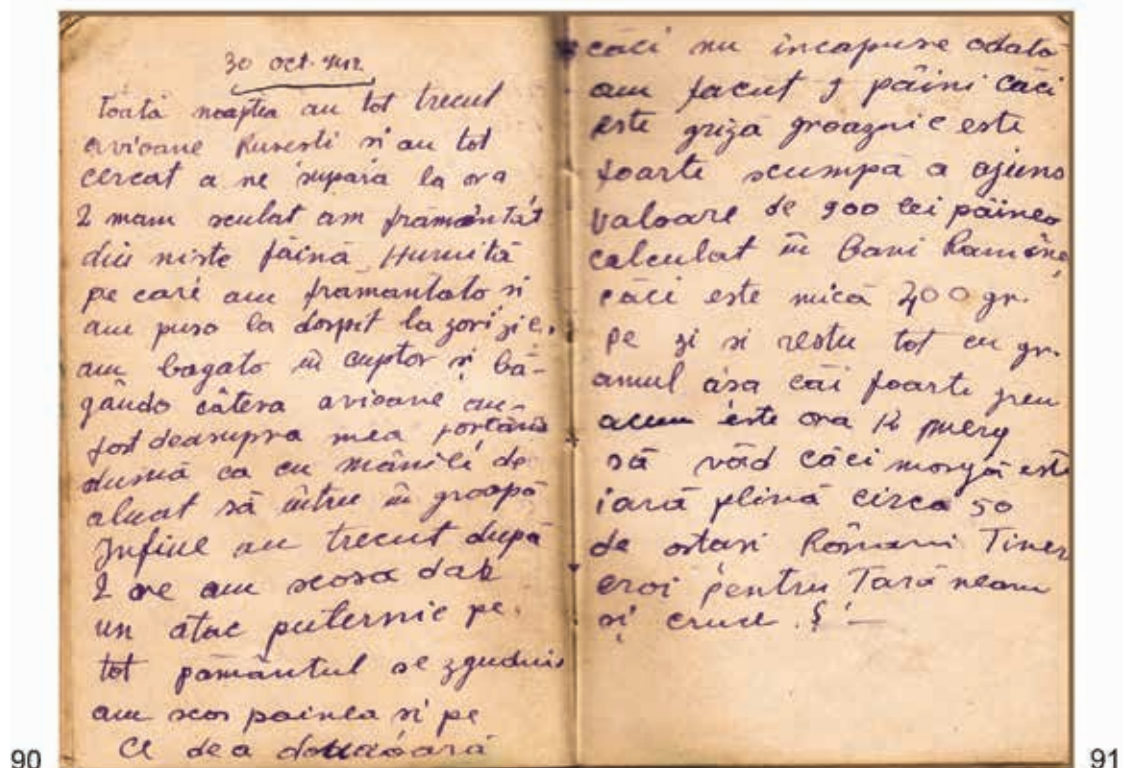 30 oct. 1942
toată noaptea au tot trecut
avioane Rusesti si au tot
cercat a ne supara la ora
2 mam sculat am frământat
din niste făină Humită
pe care am framantato si
am puso la dospit la zori zie,
am bagato în cuptor și bă-
gândo câteva avioane au
fost deasupra mea forțăn
dumă ca cu mânile de
aluat să intru în groapă
Infine au trecut după
2 ore am scosa dar
un atac puternic pe
tot pamântul se zguduis
am scos painea si pe
a de a douaoară
căci nu incapuse odată
am facut 9 pâini căci
este griză groaznic este
foarte scumpă a ajuns
valoare de 900 lei pâinea
calculat în Bani Române
căci este mică 400 gr.
pe zi si restu tot cu gr.
amul ăsa căi foarte greu
acum este ora 12 merg
să văd căci morgă este
iară plină circa 50
de ostasi Români Tiner
eroi pentru Tară neam
și cruce.
90
91